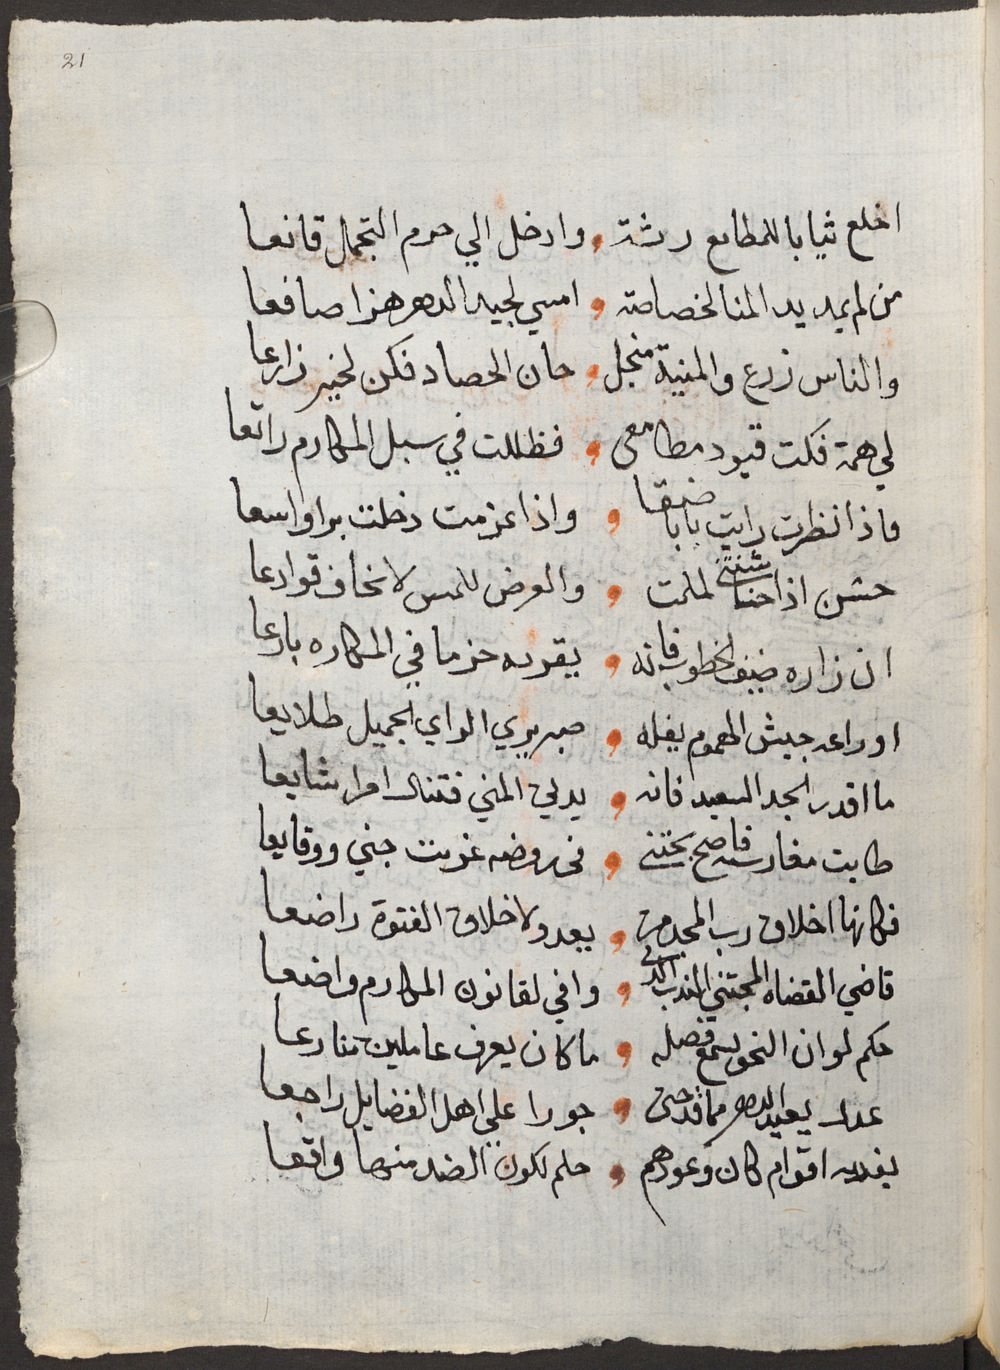 21
اخلع ثيابا للمطامع رثة و وادخل الي حرم التجمل قانعا
من لم يمد يد المنا لخصاصة و امسي لجيد الدهر هزا صافعا
والناس زرع والمنية منجل و حان الحصاد فكن لخير زارعا
لي همة فكت قيود مطامعي و فظللت في سبل المكارم راتعا
فاذا نظرت رايت بابا ضيقا و واذا عزمت دخلت برا واسعا
خشن اذا لملمت و والعرض للمس لا تخاف قوارعا
ان زاره ضيف الخطوب فانه و يقريه حزما في المكاره بارعا
او راعه جيش الهموم يفله و صبر يري الراي الجميل طلايعا
ما اقدر الجد السعيد فانه و يدلي المني فتنال امرا شايعا
طابت مغارسه فاصبح يجتني و في روضه غرست جني ووقايعا
فكانها اخلاق رب المجد من و يعدو لاخلاق الفتوة راضعا
قاضي القضاه المجتني الندب الذي و وافي لقانون المكارم واضعا
حكم لو ان النحو يسمع فصله و ما كان يعرف عاملين تنازعا
عدل يعيد الدهر مما قد جني و جورا علي اهل الفضايل راجعا
يفديه اقوام كان وعودهم و حلم لكون الضد منها واقعا